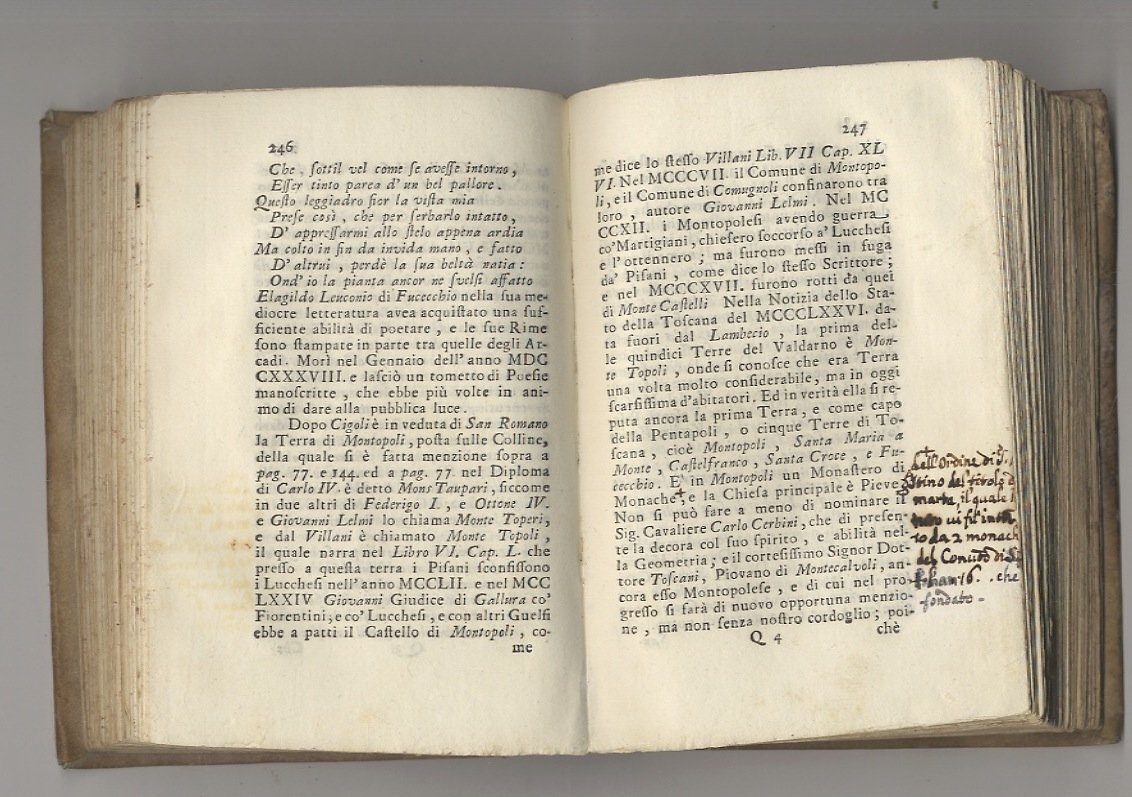 246
Che ſottil vel come ſe aveſſe intorno,
Eſſer tinto parea d'un bel pallore.
Queſto leggiadro fior la viſta mia
Preſe così, che per ſerbarlo intatto,
D'appreſſarmi allo ſtelo appena ardia
Ma colto in fin da invida mano, e fatto
D'altrui, perdè la ſua beltà natia:
Ond'io la pianta ancor ne ſvelſi affatto
Elagildo Leuconio di Fucecchio nella ſua me-
diocre letteratura avea acquiſtato una ſuf-
ficiente abilità di poetare, e le ſue Rime
ſono ſtampate in parte tra quelle degli Ar-
cadi. Morì nel Gennaio dell'anno MDC
CXXXVIII. e laſciò un tometto di Poeſie
manoſcritte, che ebbe più volte in ani-
mo di dare alla pubblica luce.
Dopo Cigoli è in veduta di San Romano
la Terra di Montopoli, poſta ſulle Colline,
della quale ſi è fatta menzione ſopra a
pag. 77. e 144. ed a pag. 77 nel Diploma
di Carlo IV. è detto Mons Taupari, ſiccome
in due altri di Federigo I., e Ottone IV.
e Giovanni Lelmi lo chiama Monte Toperi,
e dal Villani è chiamato Monte Topoli,
il quale narra nel Libro VI. Cap. L. che
preſſo a queſta terra i Piſani ſconfiſſono
i Luccheſi nell'anno MCCLII. e nel MCC
LXXIV Giovanni Giudice di Gallura co'
Fiorentini; e co' Luccheſi, e con altri Guelfi
ebbe a patti il Caſtello di Montopoli, co-
me
247
me dice lo ſteſſo Villani Lib. VII Cap. XL
VI. Nel MCCCVII. il Comune di Montopo-
li, e il Comune di Comugnoli confinarono tra
loro, autore Giovanni Lelmi. Nel MC
CCXII. i Montopoleſi avendo guerra
co'Martigiani, chieſero ſoccorſo a' Luccheſi
e l'ottennero; ma furono meſſi in fuga
da' Piſani, come dice lo ſteſſo Scrittore;
e nel MCCCXVII. furono rotti da quei
di Monte Caſtelli Nella Notizia dello Sta-
to della Toſcana del MCCCCLXXVI. da-
ta fuori dal Lambecio, la prima del-
le quindici Terre del Valdarno è Mon-
te Topoli, onde ſi conoſce che era Terra
una volta molto conſiderabile, ma in oggi
ſcarſiſſima d'abitatori. Ed in verità ella ſi re-
puta ancora la prima Terra, e come capo
della Pentapoli, o cinque Terre di To-
ſcana, cioè Montopoli, Santa Maria a
Monte, Caſtelfranco, Santa Croce, e Fu-
cecchio. E' in Montopoli un Monaſtero di
Monache+, e la Chieſa principale è Pieve
Non ſi può fare a meno di nominare il
Sig. Cavaliere Carlo Cerbini, che di preſen-
te la decora col ſuo ſpirito, e abilità nel-
la Geometria; e il corteſiſſimo Signor Dot-
tore Toſcani, Piovano di Montecalvoli, an-
cora eſſo Montopoleſe, e di cui nel pro-
greſſo ſi farà di nuovo opportuna menzio-
ne, ma non ſenza noſtro cordoglio; poi-
Q 4
chè
+
dell'Ordine di
ſtino del titolo
marta, il quale
vi fù
to da 2 monach
del
16. . che
fondato -